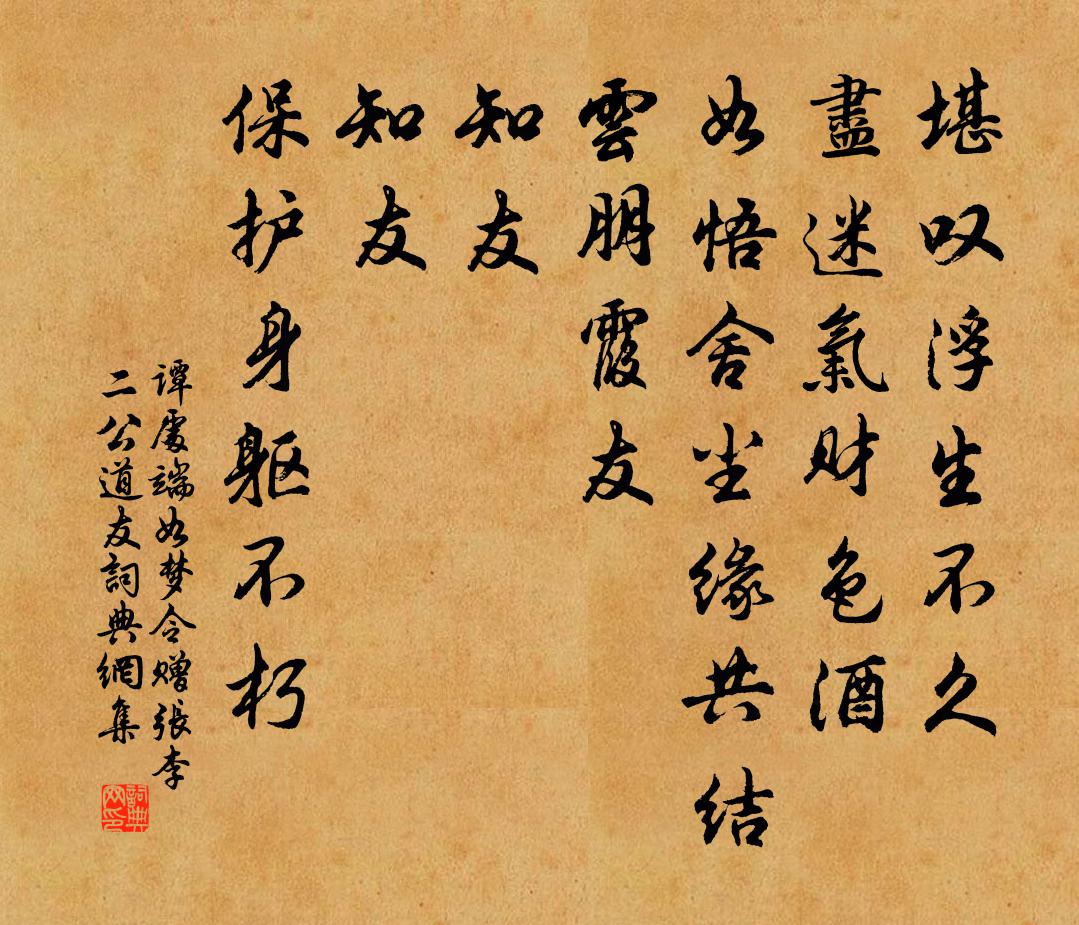 堪叹浮生不久
盡迷氣财色酒
如悟舍尘缘共结
雲朋霞友
知友
知友
保护身躯不朽
谭處端如梦令赠張李
二公道友詞典網集
詞典网印